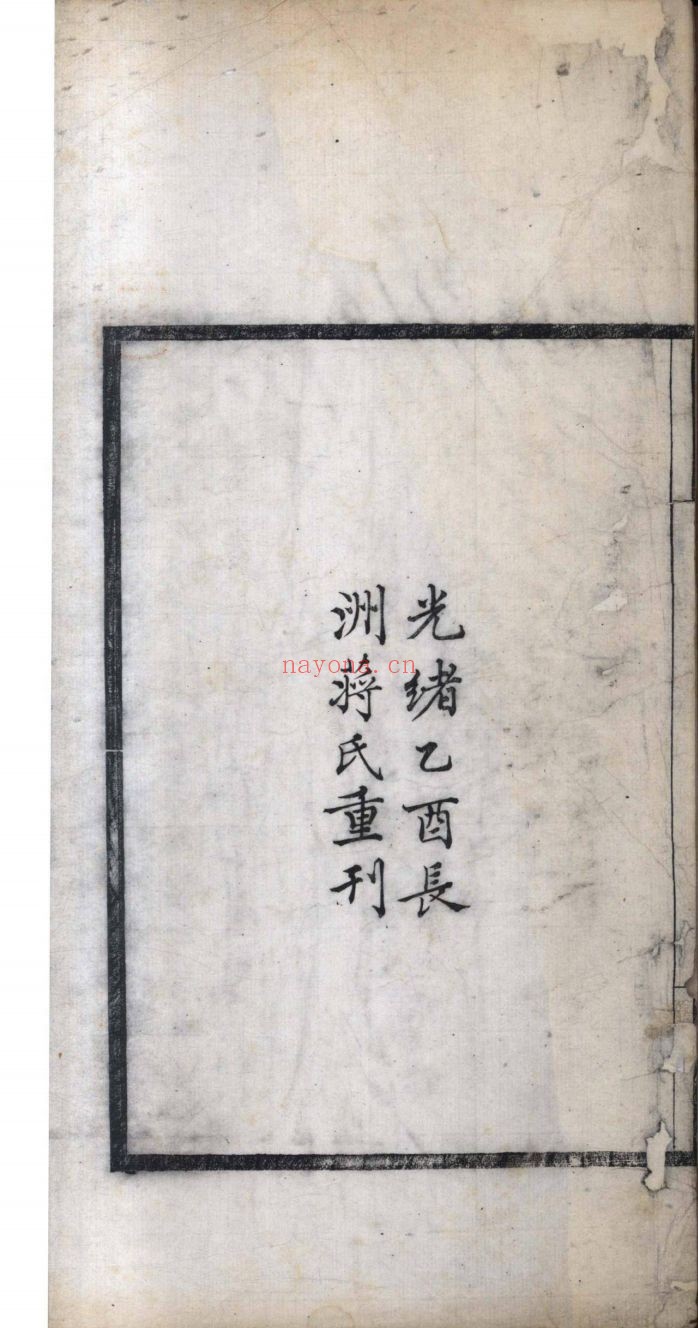 光緒乙酉長
洲蔣氏重刊
nayona.cn